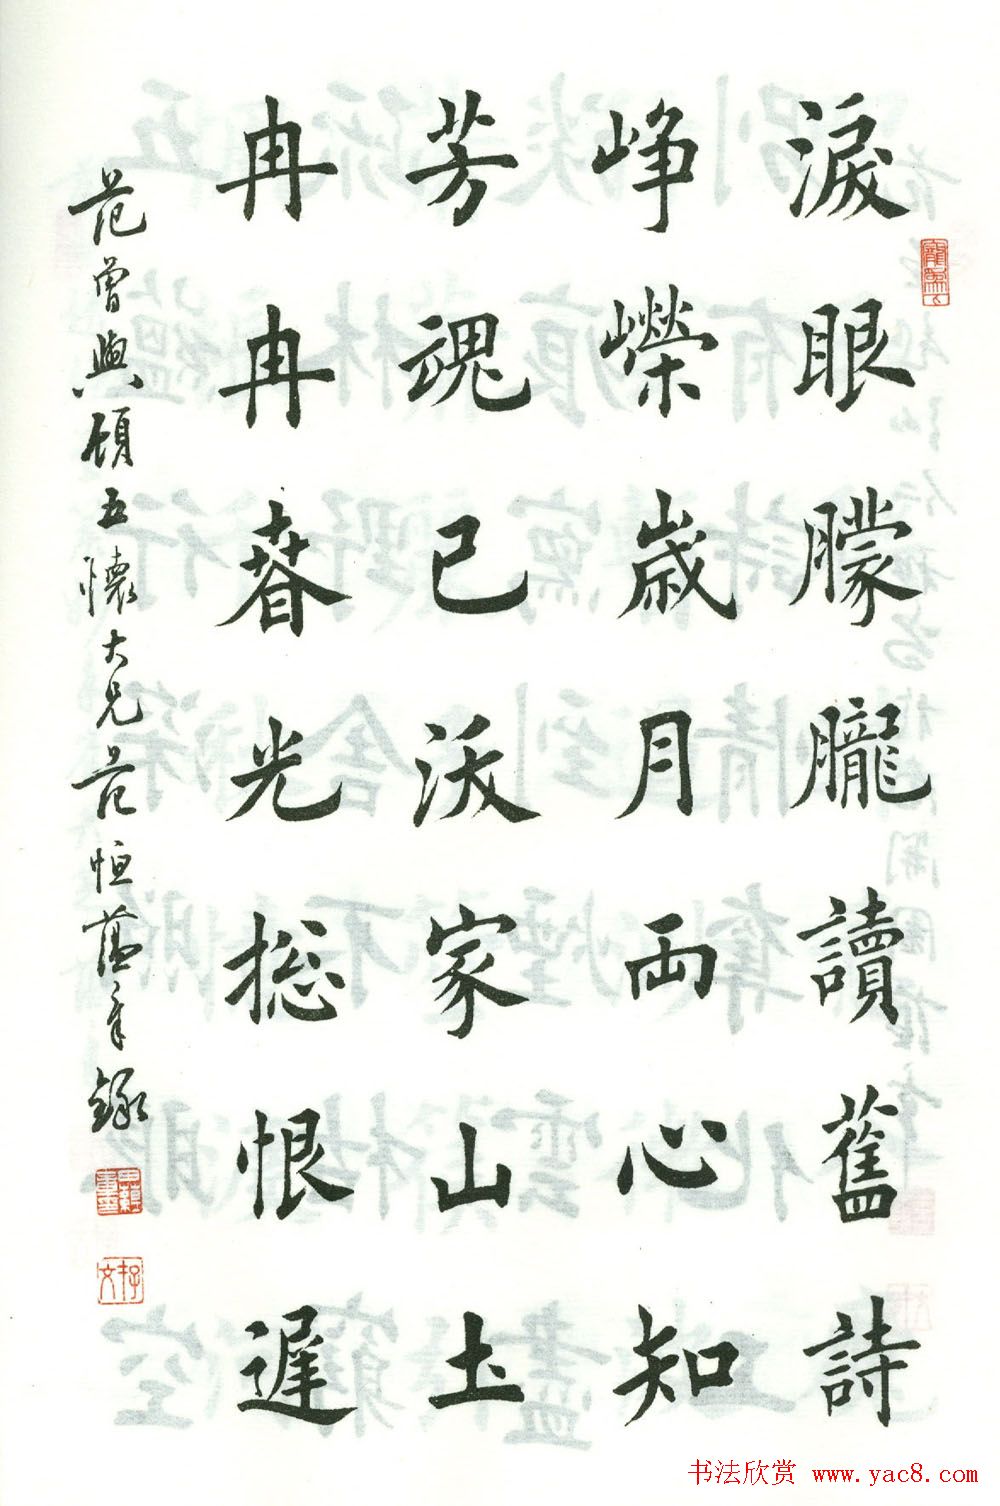 淚眼朦朧讀舊詩
崢嶸歲月兩心知
芳魂已沃家山土
冉冉春光總恨遲
范曾與頎五懷大兄 范恒
錄
书法欣赏 www.yac8.com